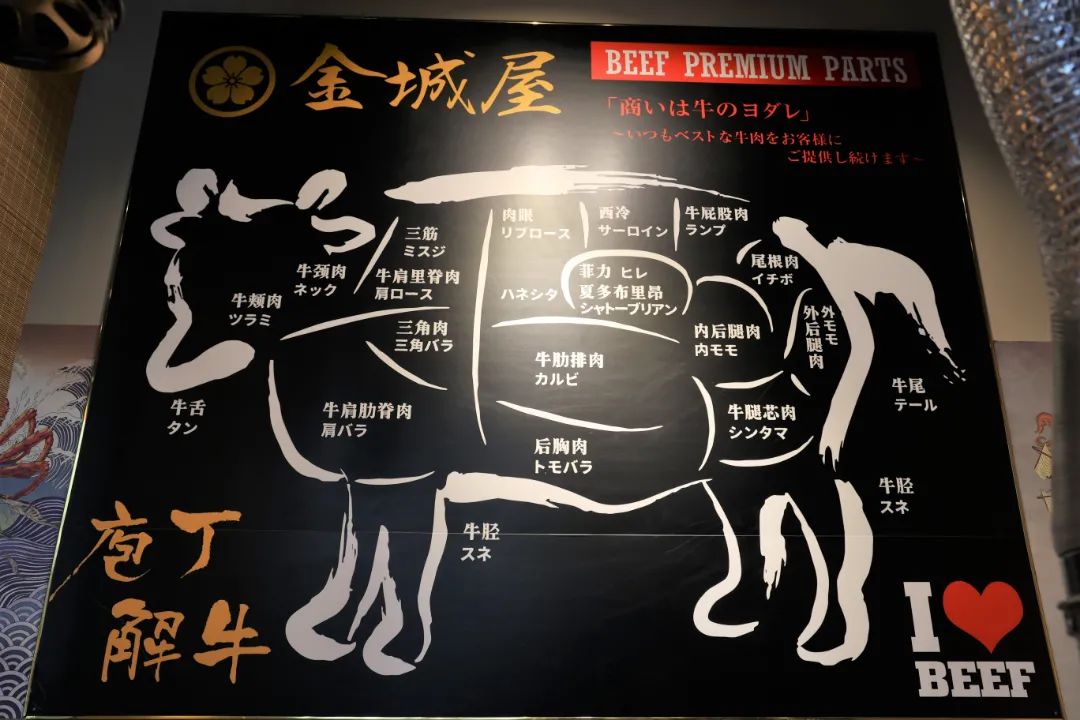 金城屋
BEEF PREMIUM PARTS
「商いは牛のヨダレ」
~いつもベストな牛肉をお客様に
ご提供し続けます~
三筋
ミスジ
肉眼
リブロース
西冷
サーロイン
牛屁股肉
ランプ
牛颈肉
ネック
牛肩里脊肉
肩ロース
ハネシタ
菲力 ヒレ
夏多布里昂
シャトーブリアン
尾根肉
イチボ
牛颊肉
ツラミ
三角肉
三角バラ
牛肋排肉
カルビ
内后腿肉
内モモ
外モモ
外后腿肉
牛舌
タン
牛肩肋脊肉
肩バラ
后胸肉
トモバラ
牛腿芯肉
シンタマ
牛尾
テール
牛胫
スネ
牛胫
スネ
庖丁
解牛
I
BEEF